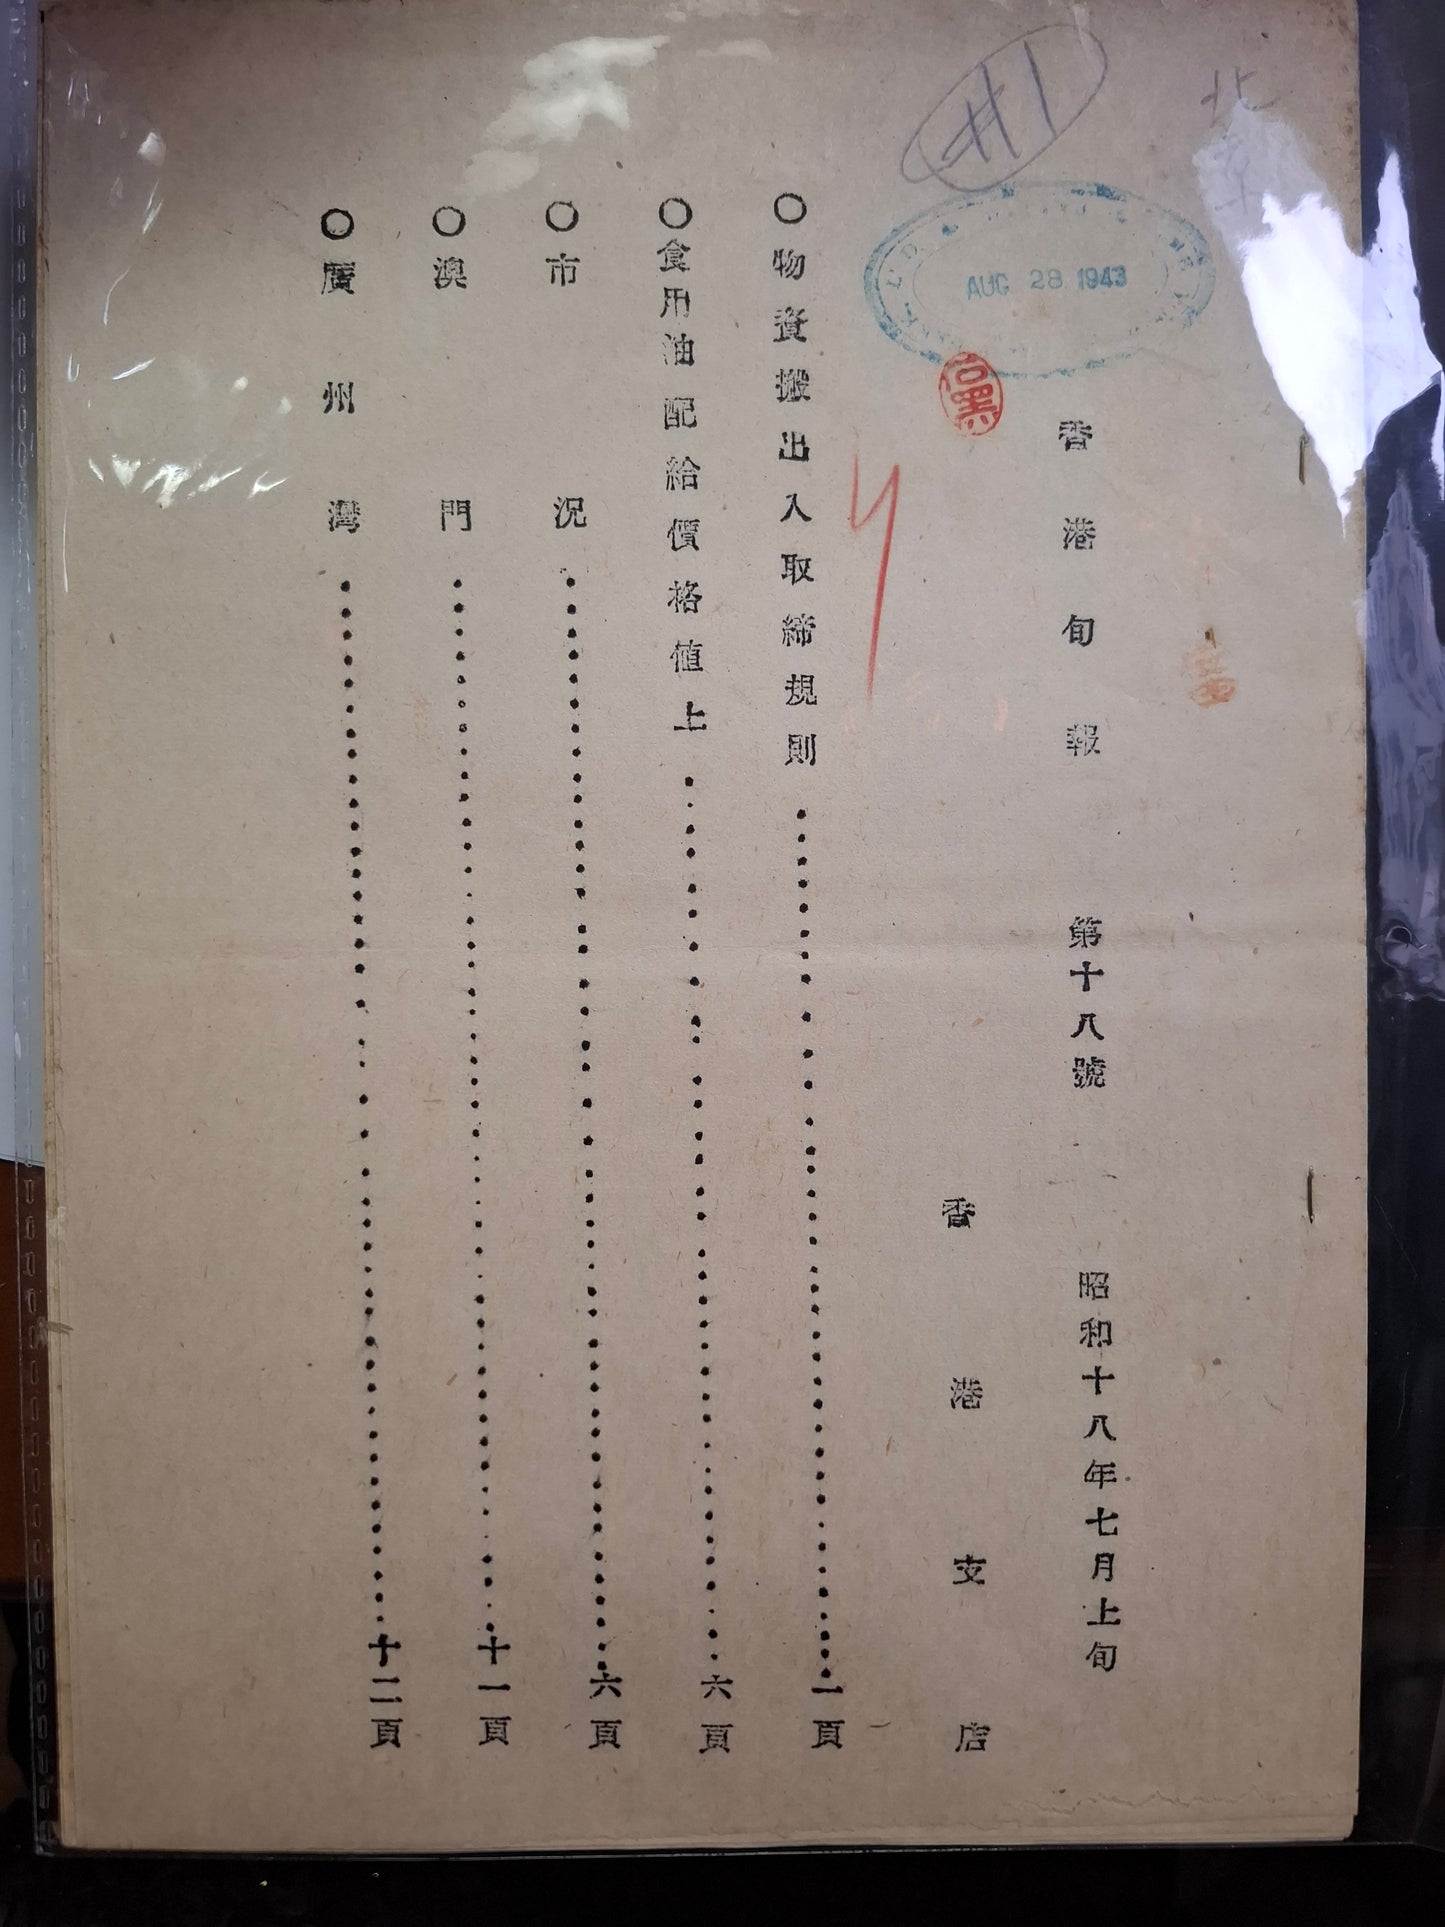 北
#1
AUG 28 1943
香港旬報 第十八號 昭和十八年七月上旬
香港支店
〇物資搬出入取締規則…………一頁
〇食用油配給價格値上…………六頁
〇市況…………六頁
〇澳門…………十一頁
〇廣州灣…………十二頁